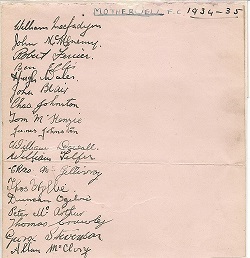 MOTHERWELL F.C 1934-35
William MacFadyen
John McMenemy
Robert Ferrier
Ben Ellis
Hugh Wales
John Blair
Chas Johnston
Tom McKenzie
James Johnston
William Dowall
William Telfer
McGillivray
Thos Wylie
Duncan Ogilvie
Peter McArthur
Thomas Crawley
George Stevenson
Allan McClory